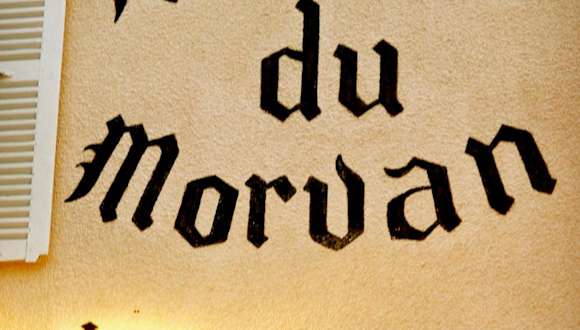 du
Morvan